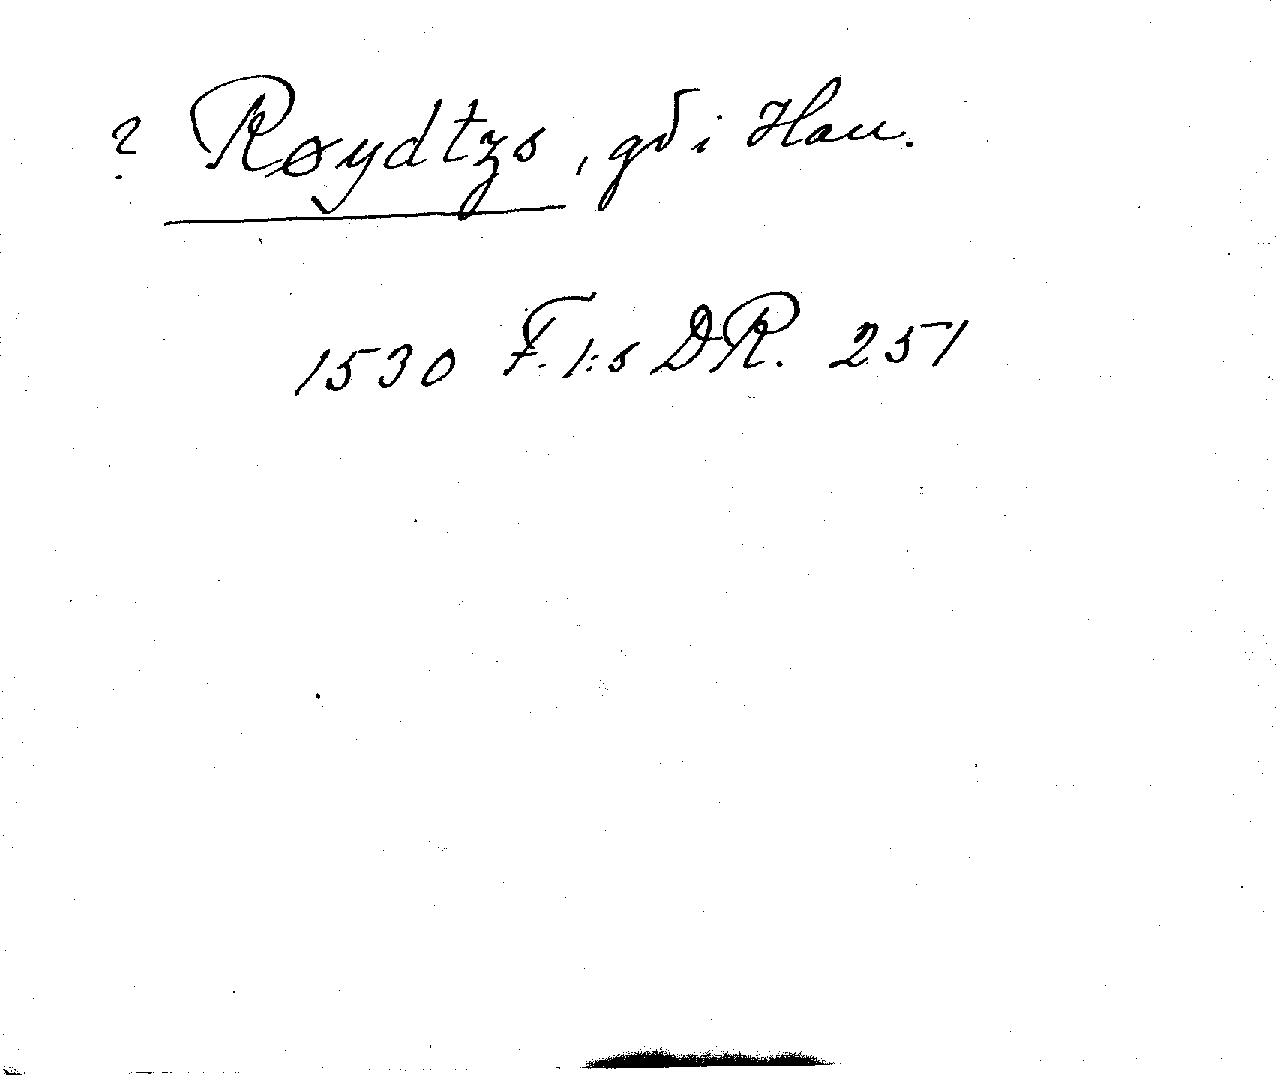 ? Røydtzs, gd i Hau.
1530 F. 1:s DR. 251